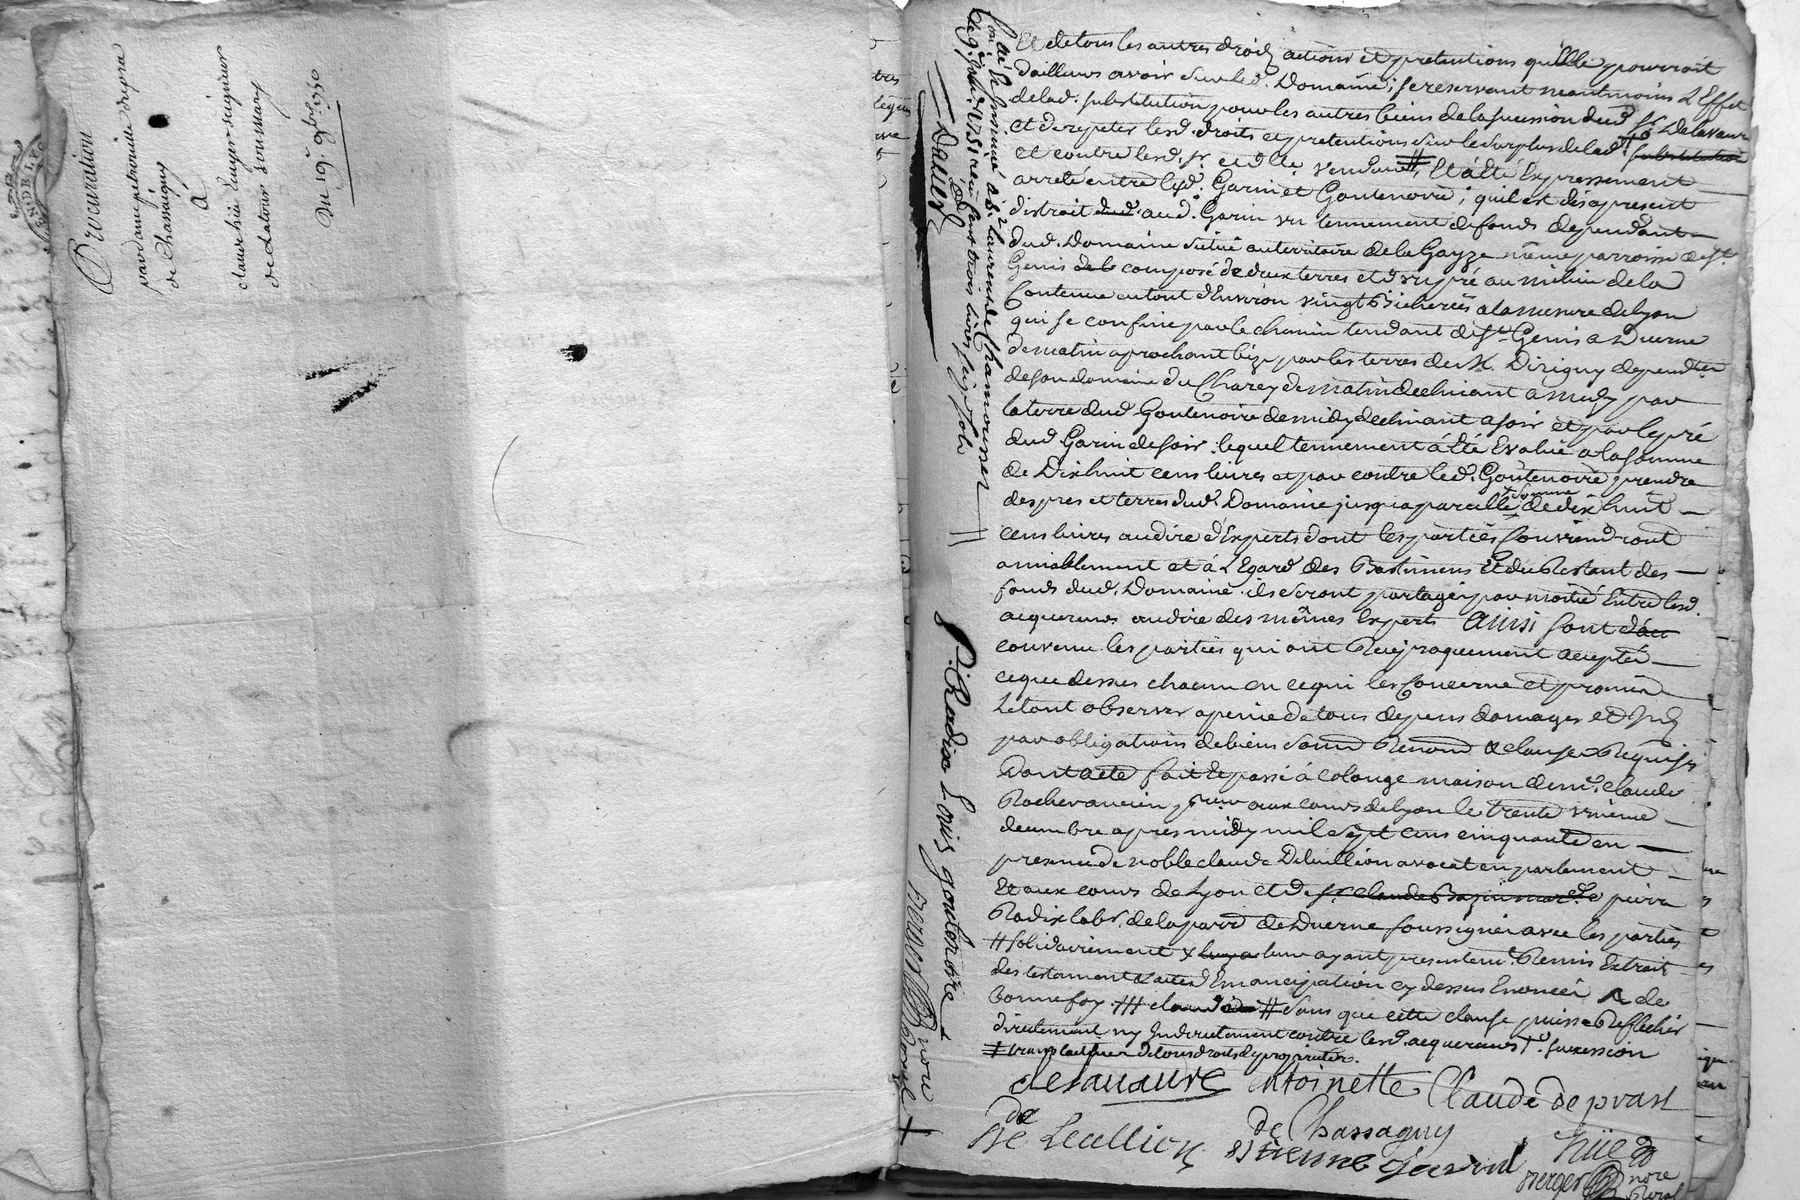 Procuration
par dame petronille dupra
de Chassaigny
à
claude huë Euger seigneur
de la tour Sommary
Du 19e. 9bre 1750
Et de tous les autres droitz actions et pretentions qu'elle pourroit
dailleurs avoir sur led. Domaine; se reservant neantmoins L'Effet
de lad. substitution pour les autres biens de la sucession dud. sr. Delavaure
et de repeter lesd. droits et pretentions sur le surplus de lad. substitution
et contre lesd. sr. et dlle. vendeurs, Et a été Expressement
arreté entre lesd. Garin et Goutenoire; quil est dès apresent
distrait dud. aud. Garin un tennement de fonds dependant
dud. Domaine situé au territoire de la Gayze même parroisse de St.
Genis de la composé de deux terres et d'un pré au milieu de la
Contenue en tout d'Environ vingt Bicherées a la mesure de Lyon
qui se confine par le chemin tendant de St. Genis a Duerne
de matin aprochant bize par les terres de M. Dirigny dependtes
de son domaine du Charey de matin declinant a midy par
la terre dud. Goutenoire de midy declinant a soir et par le pré
dud. Garin de soir. lequel tennement a été Evalué a la somme
de Dixhuit cens livres et par contre led. Goutenoire prendra
des pres et terres dud. Domaine jusqu'a pareille somme de dix huit
cens livres au dire d'Experts dont les parties Conviendront
amiablement et à L'Egard des Bastimens Et du Restant des
fonds dud. Domaine ils seront partagés par moitié Entre lesd.
acquereurs au dire des mêmes Experts Ainsi sont
convenu les parties qui ont Reciproquement accepté
ce que dessus chacun en ce qui les Concerne et promis
Le tout observer a peine de tous depens domages et
par obligations de biens soum Renond & clauses Requises
Dont acte fait Et passé à colonge maison de me. claude
Rocher ancien aux cours de Lyon le trente unieme
decembre apres midy mil sept cens cinquante en
presence de noble claude Deleullion avocat en parlement
Et aux cours de Lyon et de sr. claude Bazin mard. pierre
Radix labr. de la parr. de Duerne soussignés avec les parties
# solidairement X leur ayant presentemt. Remis Extrait
des testament & actes d'Emancipation cy dessus Enoncés de
bonne foy. ### # sans que cette clause puisse Reflechir
directement ny Indirectement contre lesd. acquereurs T succession
de tous droits de proprieté.
delavaure Antoinette Claude de prast
De Leullion de Chassagny hüe
Etienne Garin
Berger nore
Royal
P. Radix Louis goutenoire
Berger nore Royal
Con.lé & Insinué à St. Laurent de Chamousset
le 9. Janv. 1751 reçu Cent trois livres six sols
Dauier